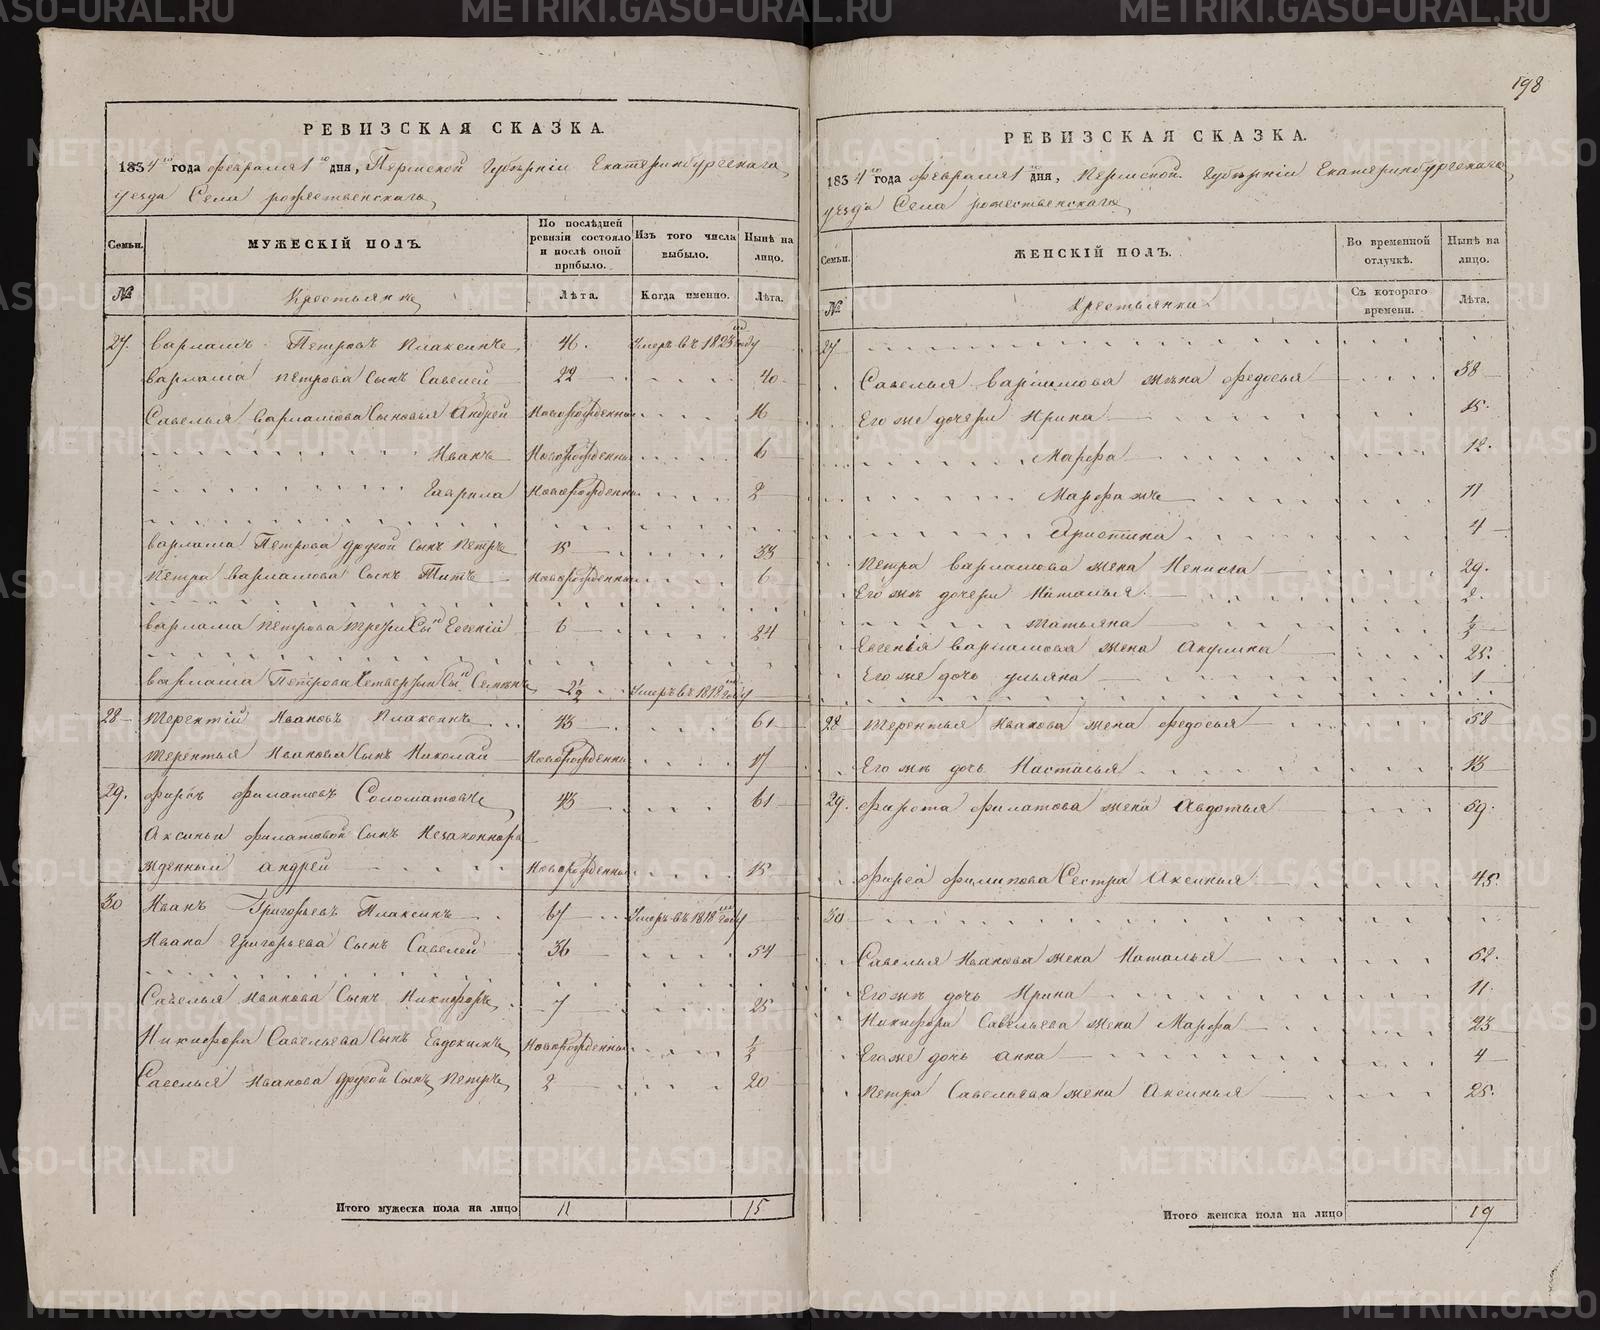 198
РЕВИЗСКАЯ СКАЗКА.
1834го года февраля 1го дня, Пермской Губерніи Екатеринбургскаго
уезда Села рожественскаго
Семьи.
МУЖЕСКІЙ ПОЛЪ.
По послѣдней ревизіи состояло и послѣ оной прибыло.
Изъ того числа выбыло.
Нынѣ на лицо.
№
Крестьяне
Лѣта.
Когда именно.
Лѣта.
27. Варламъ Петровъ Плаксинъ 46. Умеръ въ 1823 году
Варлама Петрова Сынъ Савелей 22 40
Савелья Варламова Сыновья Андрей Новорожденны 16
Иванъ Новорожденны 6
Гаврила Новорожденны 2
Варлама Петрова другой Сынъ Петръ 15 33
Петра Варламова Сынъ Титъ новорожденны 6
Варлама Петрова третій Сы Евгеній 6 24
Варлама Петрова Четвертый Сы Семенъ 2½ Умеръ въ 1818 году
28 Терентій Ивановъ Плаксинъ 43 61
Терентья Иванова Сынъ Николай Новорожденны 17
29. Фирсъ Филатовъ Соломатовъ 43 61
Аксиньи Филатовой Сынъ Незаконноро
жденный Андрей Новорожденны 15
30 Иванъ Григорьевъ Плаксинъ 67 Умеръ въ 1818 году
Ивана Григорьева Сынъ Савелей 36 54
Савелья Иванова Сынъ Никифоръ 7 25
Никифора Савельева Сынъ Евдокимъ Новорожденны ½
Савелья Иванова другой Сынъ Петръ 2 20
Итого мужеска пола на лицо 11 15
РЕВИЗСКАЯ СКАЗКА.
1834го года февраля 1го дня, Пермской Губерніи Екатеринбургскаго
уезда Села рожественскаго
Семьи.
ЖЕНСКІЙ ПОЛЪ.
Во временной отлучкѣ.
Нынѣ на лицо.
№
Крестьянки
Съ котораго времени.
Лѣта.
27
Савелья Варламова жена Федосья 38
Его же дочери Ирина 15.
Марфа 12.
Марфа же 11
Христина 4
Петра Варламова жена 29.
Его же дочери Наталья 2.
Татьяна ½
Евгенія Варламова жена Акулина 25.
Его же дочь Ульяна 1
28 Терентья Иванова жена Федосья 58
Его же дочь Настасья 13
29. Филатова жена Авдотья 59.
Филипова Сестра Аксинья 45.
30
Савелья Иванова жена Наталья 52.
Его же дочь Ирина 11.
Никифора Савельева жена Марфа 23
Его же дочь Анна 4
Петра Савельева жена Аксинья 25.
Итого женска пола на лицо 19
METRIKI.GASO-URAL.RU